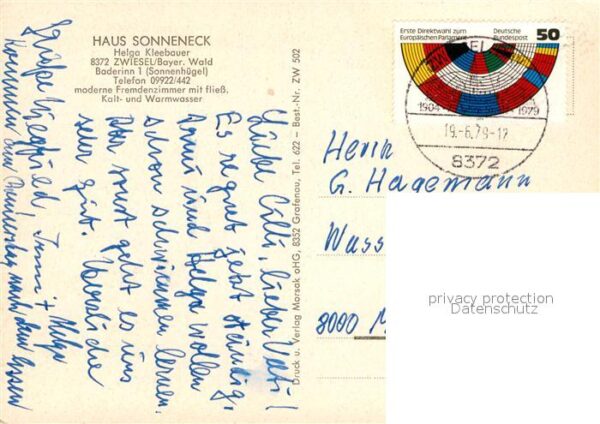 HAUS SONNENECK
Helga Kleebauer
8372 ZWIESEL/Bayer. Wald
Baderinn 1 (Sonnenhügel)
Telefon 09922/442
moderne Fremdenzimmer mit fließ.
Kalt- und Warmwasser
Druck u. Verlag Morsak oHG, 8352 Grafenau, Tel. 622 – Best.-Nr. ZW 502
Erste Direktwahl zum
Europäischen Parlament
Deutsche
Bundespost
50
1904
1979
19.-6.79-12
8372
Liebe Cilli, lieber Vati!
Es regnet jetzt ständig,
und Helga wollen
schon schwimmen lernen.
sonst geht es uns
sehr gut. Herzliche
Grüße Siegfried, Irmi +
Helga
Kommen am Donnerstag nach dem Essen
Herrn
G. Hagemann
Wass
8000 M
privacy protection
Datenschutz